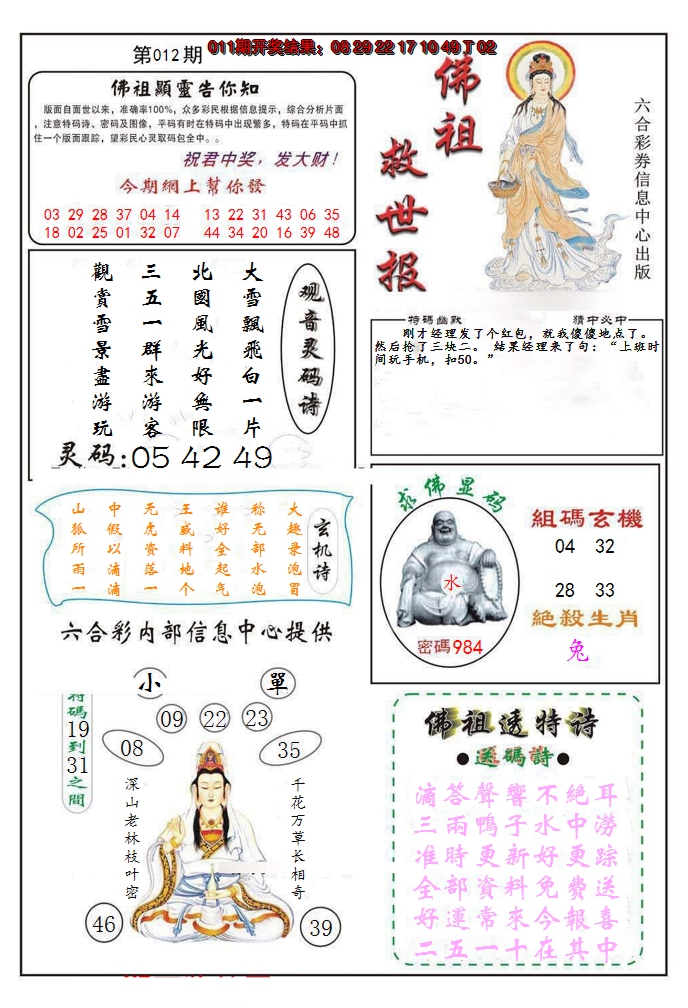 第012期
011期开奖结果：08 29 22 17 10 49 T 02
佛祖顯靈告你知
版面自面世以来，准确率100%，众多彩民根据信息提示，综合分析片面
，注意特码诗、密码及图像，平码有时在特码中出现繁多，特码在平码中抓
住一个版面跟踪，望彩民心灵取码包全中。。
祝君中奖，发大财！
今期網上幫你發
03 29 28 37 04 14 13 22 31 43 06 35
18 02 25 01 32 07 44 34 20 16 39 48
佛祖
救世报
六合彩券信息中心出版
观音灵码诗
大雪飄飛白一片
北國風光好無限
三五一群來游客
觀賞雪景盡游玩
灵码:05 42 49
特码幽默
猜中必中
刚才经理发了个红包，就我傻傻地点了。
然后抢了三块二。 结果经理来了句：“上班时
间玩手机，扣50。”
玄机诗
大趣录泡冒
称无部水泡
谁好全起气
王威料地个
无虎资落一
中假以滴滴
山狐所雨一
六合彩内部信息中心提供
求佛显码
水
密碼984
組碼玄機
04 32
28 33
絕殺生肖
兔
小
單
特碼19到31之間
09
22
23
08
35
深山老林枝叶密
千花万草长相奇
46
39
佛祖透特诗
●送碼詩●
滴答聲響不絕耳
三雨鴨子水中澇
准時更新好更踪
全部資料免費送
好運常來今報喜
二五一十在其中